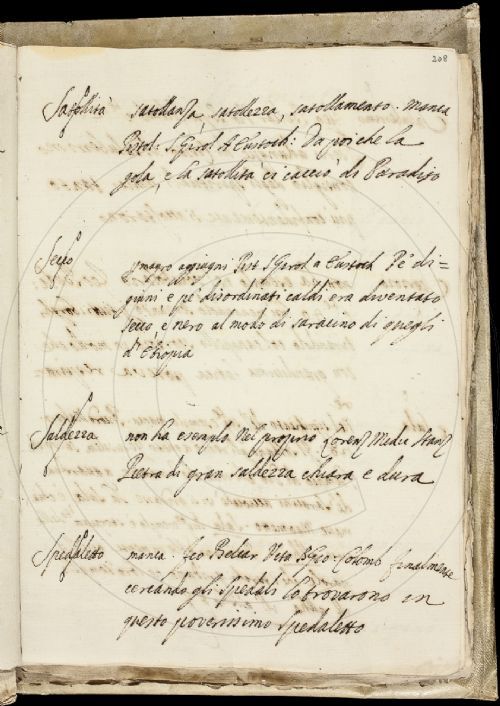 208
Satollità satollanza, satollezza, satollamento. manca
Pistol: S. Girol. A Eustoch: Da poi che la
gola, e la satollità ci cacciò di Paradiso
Secco
p magro aggiugni Pist S. Girol a Eustoch Pe' di=
giuni e pe' disordinati caldi era diventato
secco e nero al modo di saracino di quegli
d'Etiopia
Saldezza non ha esempio Nel proprio Lorenz Medic Stanz
Pietra di gran saldezza chiara e dura
Spedaletto manca. Feo Belcar Vita B. Gio: Colomb finalmente
cercando gli Spedali lo trovarono in
questo poverissimo Spedaletto